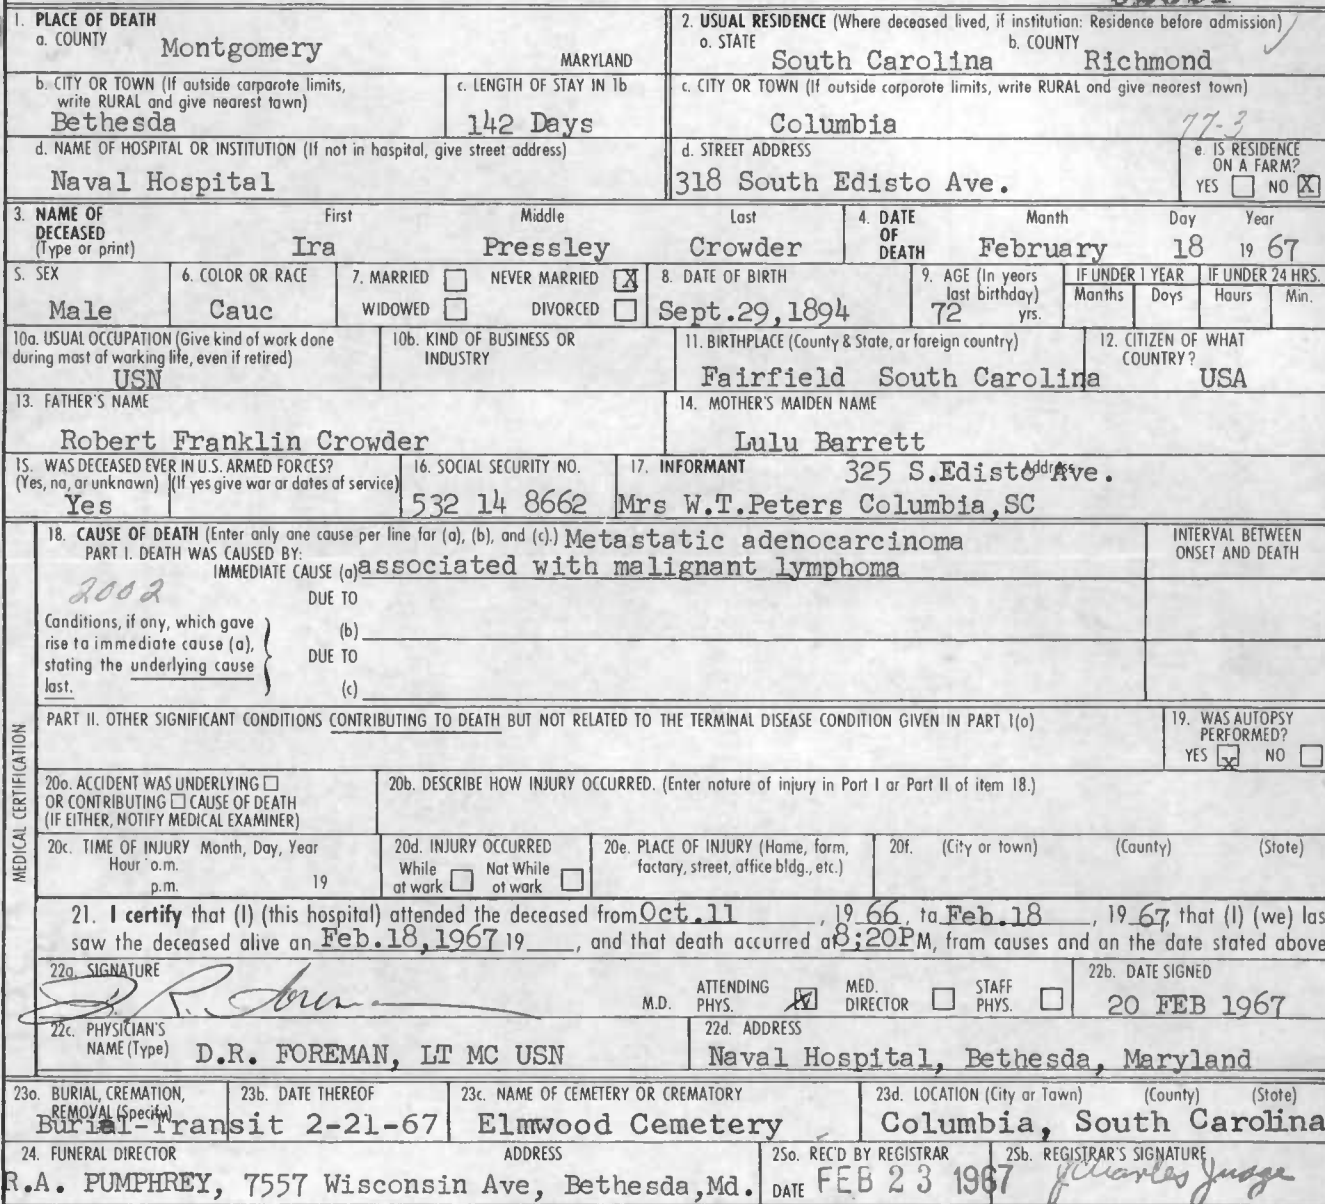 1. PLACE OF DEATH
a. COUNTY Montgomery MARYLAND
2. USUAL RESIDENCE (Where deceased lived, if institution: Residence before admission)
a. STATE South Carolina b. COUNTY Richmond
b. CITY OR TOWN (If outside corporate limits, write RURAL and give nearest town)
Bethesda
c. LENGTH OF STAY IN 1b
142 Days
c. CITY OR TOWN (If outside corporate limits, write RURAL and give nearest town)
Columbia 77-3
d. NAME OF HOSPITAL OR INSTITUTION (If not in hospital, give street address)
Naval Hospital
d. STREET ADDRESS
318 South Edisto Ave.
e. IS RESIDENCE ON A FARM?
YES NO X
3. NAME OF DECEASED (Type or print)
First Middle Last
Ira Pressley Crowder
4. DATE OF DEATH
Month Day Year
February 18 19 67
5. SEX
Male
6. COLOR OR RACE
Cauc
7. MARRIED NEVER MARRIED X
WIDOWED DIVORCED
8. DATE OF BIRTH
Sept.29,1894
9. AGE (In years last birthday)
72 yrs.
IF UNDER 1 YEAR
Months Days
IF UNDER 24 HRS.
Hours Min.
10a. USUAL OCCUPATION (Give kind of work done during most of working life, even if retired)
USN
10b. KIND OF BUSINESS OR INDUSTRY
11. BIRTHPLACE (County & State, or foreign country)
Fairfield South Carolina
12. CITIZEN OF WHAT COUNTRY?
USA
13. FATHER'S NAME
Robert Franklin Crowder
14. MOTHER'S MAIDEN NAME
Lulu Barrett
15. WAS DECEASED EVER IN U.S. ARMED FORCES?
(Yes, no, or unknown) (If yes give war or dates of service)
Yes
16. SOCIAL SECURITY NO.
532 14 8662
17. INFORMANT Address
325 S.Edisto Ave.
Mrs W.T.Peters Columbia,SC
18. CAUSE OF DEATH (Enter only one cause per line for (a), (b), and (c).) Metastatic adenocarcinoma
PART I. DEATH WAS CAUSED BY:
IMMEDIATE CAUSE (a) associated with malignant lymphoma
INTERVAL BETWEEN ONSET AND DEATH
2002
DUE TO
Conditions, if any, which gave rise to immediate cause (a), stating the underlying cause last.
(b)
DUE TO
(c)
PART II. OTHER SIGNIFICANT CONDITIONS CONTRIBUTING TO DEATH BUT NOT RELATED TO THE TERMINAL DISEASE CONDITION GIVEN IN PART 1(a)
19. WAS AUTOPSY PERFORMED?
YES x NO
MEDICAL CERTIFICATION
20a. ACCIDENT WAS UNDERLYING
OR CONTRIBUTING CAUSE OF DEATH
(IF EITHER, NOTIFY MEDICAL EXAMINER)
20b. DESCRIBE HOW INJURY OCCURRED. (Enter nature of injury in Part I or Part II of item 18.)
20c. TIME OF INJURY Month, Day, Year
Hour a.m.
p.m. 19
20d. INJURY OCCURRED
While at work Not While at work
20e. PLACE OF INJURY (Home, farm, factory, street, office bldg., etc.)
20f. (City or town) (County) (State)
21. I certify that (I) (this hospital) attended the deceased from Oct.11, 19 66, to Feb.18, 19 67, that (I) (we) las
saw the deceased alive on Feb.18,1967 19, and that death occurred at 8;20P M, from causes and on the date stated above
22a. SIGNATURE
D. R. Foreman
M.D. ATTENDING PHYS. X MED. DIRECTOR STAFF PHYS.
22b. DATE SIGNED
20 FEB 1967
22c. PHYSICIAN'S NAME (Type) D.R. FOREMAN, LT MC USN
22d. ADDRESS
Naval Hospital, Bethesda, Maryland
23a. BURIAL, CREMATION, REMOVAL (Specify)
Burial-Transit
23b. DATE THEREOF
2-21-67
23c. NAME OF CEMETERY OR CREMATORY
Elmwood Cemetery
23d. LOCATION (City or Town) (County) (State)
Columbia, South Carolina
24. FUNERAL DIRECTOR ADDRESS
R.A. PUMPHREY, 7557 Wisconsin Ave, Bethesda,Md.
25a. REC'D BY REGISTRAR
DATE FEB 23 1967
25b. REGISTRAR'S SIGNATURE
J Charles Judge